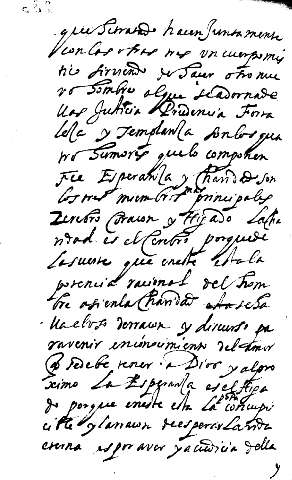 que entrando hacen juntamente
con las otras tres un cuerpo mis
tico sirviendo de hacer otro nue
vo hombre al qual se adornade
llas Justicia Prudencia Forta
leza y Templanza son los qua
tro humores que lo componen
Fee Esperanza y Charidad son
los tres miembros mas principales
Zerebro Corazon y Higado la cha
ridad es el Cerebro porque de
la suerte que en este esta la
potencia racional del hom
bre asi en la Charidad esta se ha
lla el uso de razon y discurso pa
ra venir en conocimiento del amor
q se debe tener a Dios y al pro
ximo la Esperanza es el higa
do porque en este esta la pote concupi
cible y la razon de esperar la vida
eterna es por aver y codicia della
y